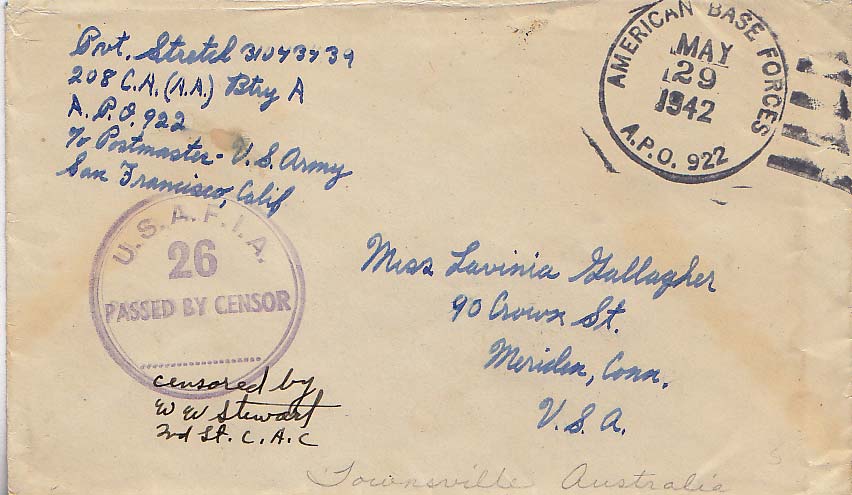 Pvt. Stretch 31043439
208 C.A. (A.A.) Btry A
A.P.O. 922
℅ Postmaster - U.S. Army
San Francisco, Calif
AMERICAN BASE FORCES
MAY
29
1942
A.P.O. 922
U.S.A.F.I.A.
26
PASSED BY CENSOR
censored by
W W Stewart
2nd Lt. C.A.C
Miss Lavinia Gallagher
90 Crown St.
Meriden, Conn.
U.S.A.
Townsville Australia
5